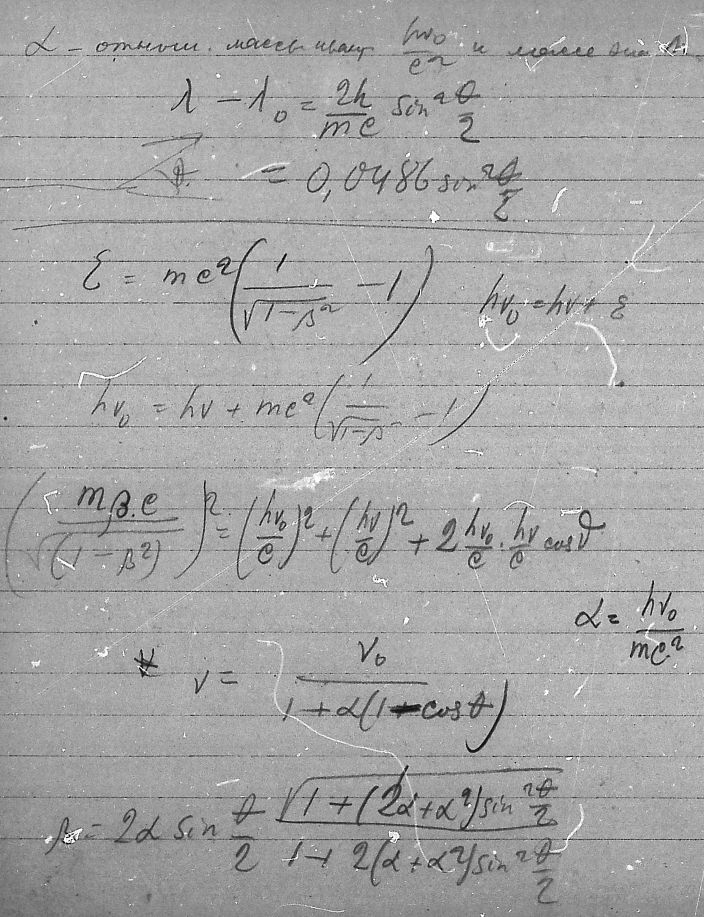 α – отнош. массы кванта hν₀/c² к массе эл
λ − λ₀ = 2h/mc sin² θ/2
= 0,0486 sin² θ/2
ε = mc² (1/√(1−β²) − 1) hν₀ = hν + ε
hν₀ = hν + mc² (1/√(1−β²) − 1)
(mβ.c/√(1−β²))² = (hν₀/c)² + (hν/c)² + 2 hν₀/c · hν/c cos ϑ
α = hν₀/mc²
ν = ν₀/(1 + α(1 − cos θ))
β = 2α sin θ/2 √(1 + (2α + α²) sin² θ/2)/(1 + 2(α + α²) sin² θ/2)